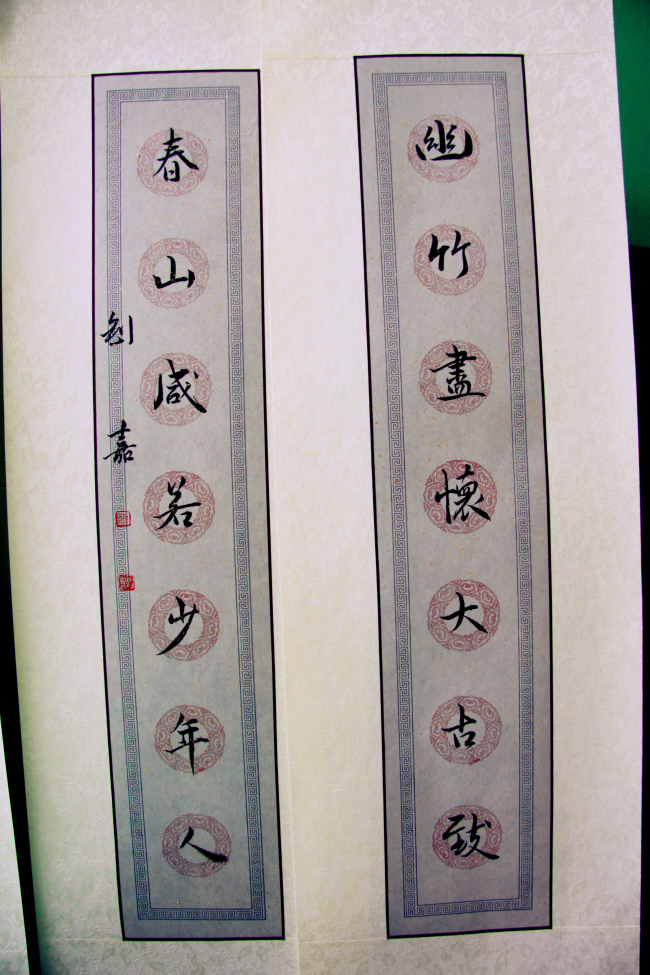 幽竹盡懷大古致
春山咸若少年人
創嘉